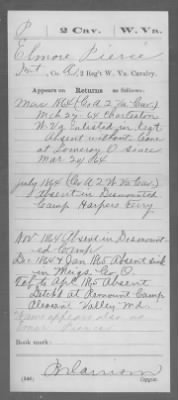 P 2 Cav. W. Va.
Elmore Pierce
Pvt, Co. A, 2 Reg't W. Va. Cavalry.
Appears on Returns as follows:
Mar 1864 (Co A 2 Va Cav)
Mch 27-64 Charleston
W Va Enlisted in Regt
Absent without leave
at Pomeroy O since
Mar 29/64
July 1864 (Co A 2 W Va Cav)
Absent in Dismounted
Camp Harpers Ferry
Nov 1864 Absent in Dismount
ed Camp
Dec 1864 & Jan 1865 Absent sick
in Meigs Co O.
Feb to Apl 1865 Absent
Detch'd at Remount Camp
Pleasant Valley Md.
Name appears also as
Pierce
Book mark:
(546)
Copyist.